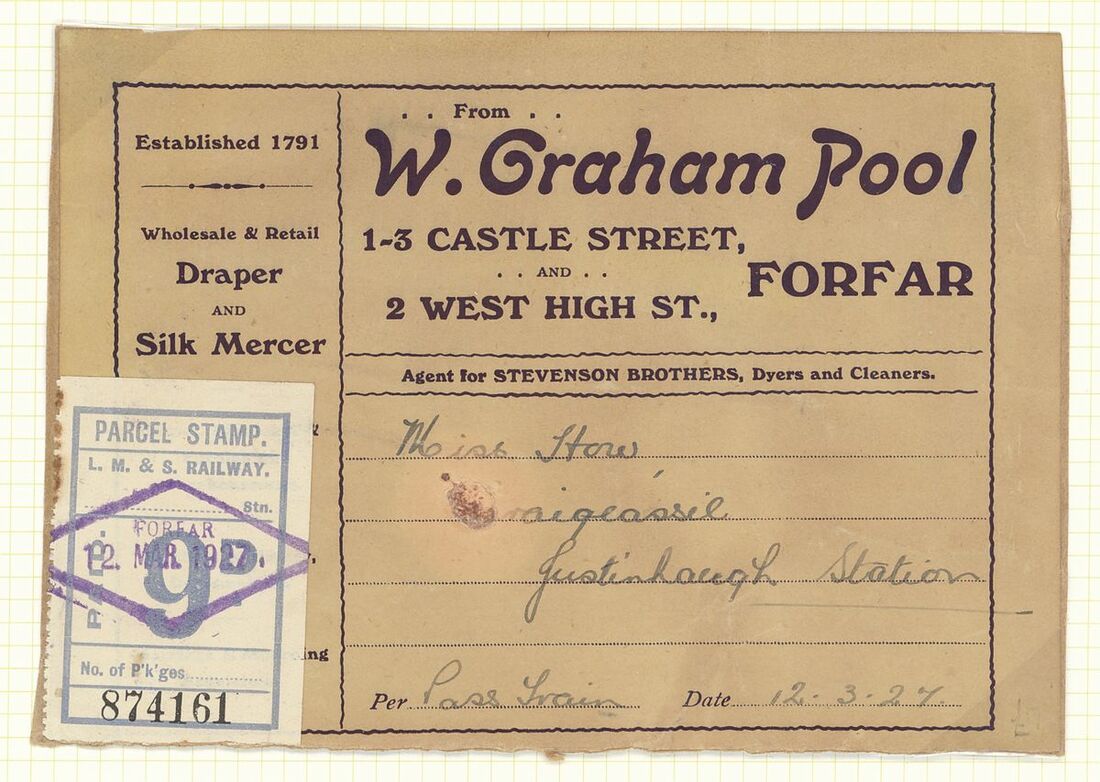 Established 1791
Wholesale & Retail
Draper
AND
Silk Mercer
. . From . .
W. Graham Pool
1-3 CASTLE STREET,
. . AND . .
2 WEST HIGH ST.,
FORFAR
Agent for STEVENSON BROTHERS, Dyers and Cleaners.
Miss How
Justinhaugh Station
Per Pass Train Date 12.3.27.
PARCEL STAMP.
L. M. & S. RAILWAY.
Stn.
FORFAR
12. MAR 1927.
PAID.
9D.
No. of P'k'ges
874161
ing